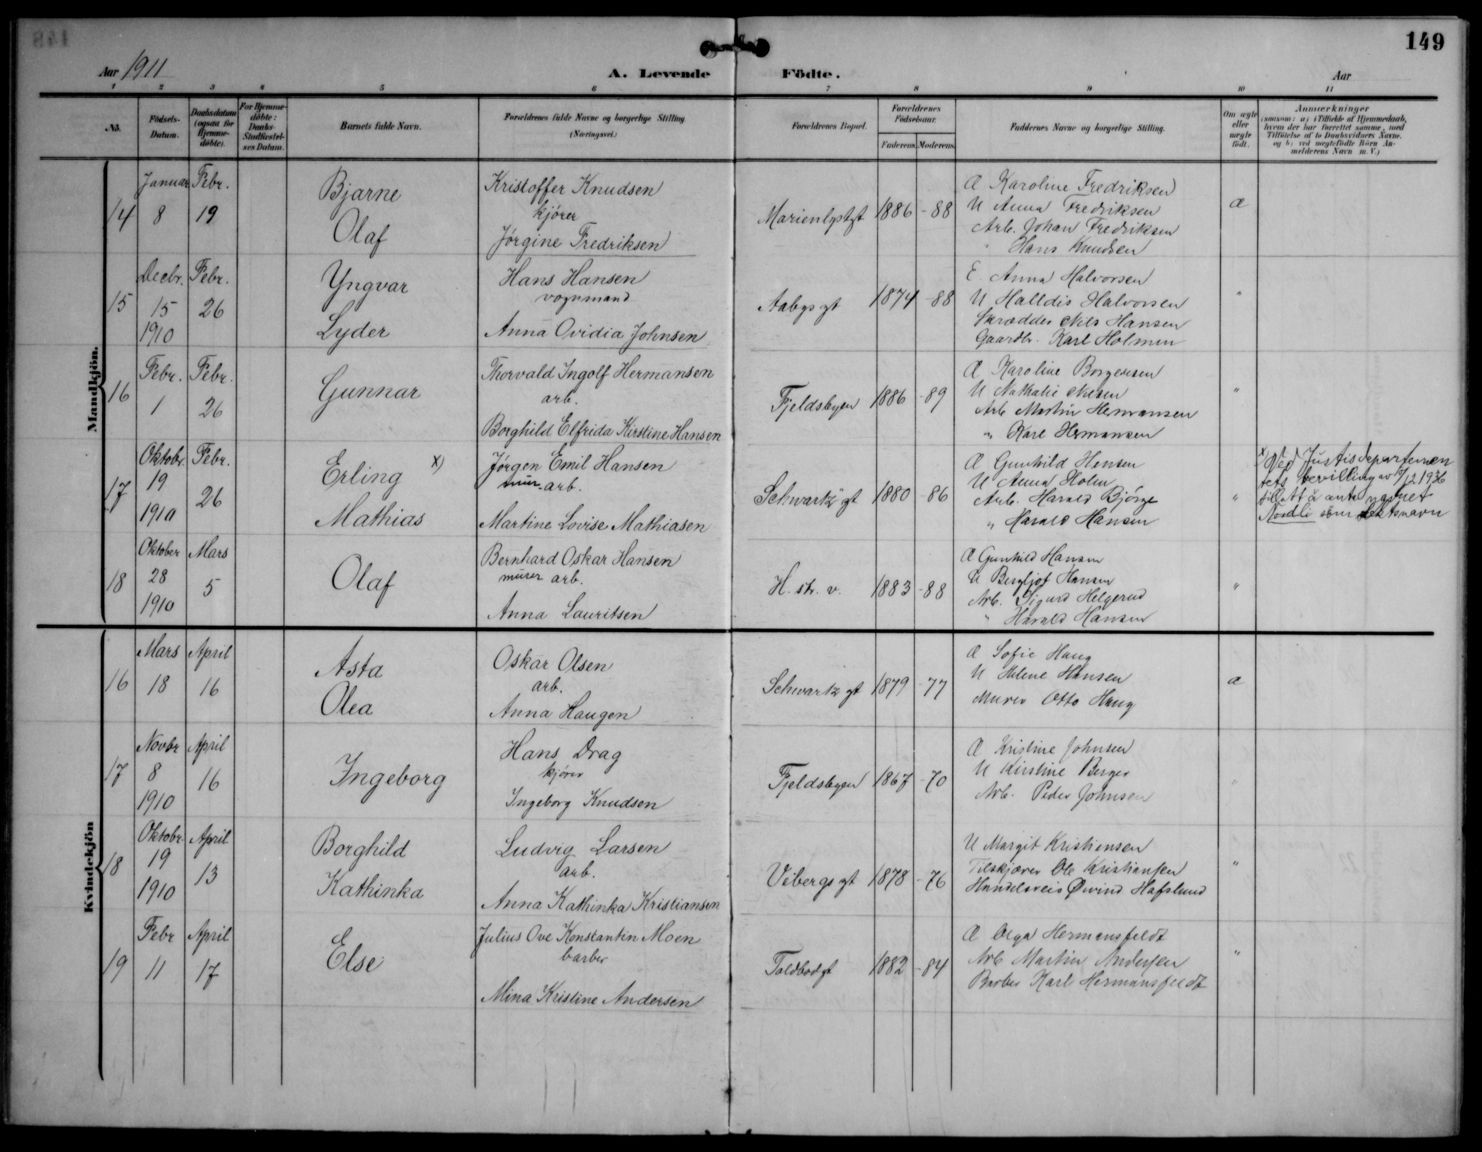 149
Aar 1911
A. Levende Födte.
Aar
1 2 3 4 5 6 7 8 9 10 11
No.
Födsels-
Datum.
Daabsdatum
(ogsaa for
Hjemme-
döbte).
For Hjemme-
döbte:
Daabs-
Stadfæstel-
ses Datum.
Barnets fulde Navn.
Forældrenes fulde Navne og borgerlige Stilling
(Næringsvei.)
Forældrenes Bopæl.
Forældrenes
Födselsaar.
Faderens. Moderens.
Faddernes Navne og borgerlige Stilling.
Om ægte
eller
uægte
födt.
Anmærkninger
(saasom: a) i Tilfælde af Hjemmedaab,
hvem der har forrettet samme, med
Tilföielse af to Daabsvidners Navne,
og b) ved uægtefödte Börn An-
melderens Navn m. V.)
Mandkjön.
14
Januar
8
Febr.
19
Bjarne
Olaf
Kristoffer Knudsen
kjører
Jørgine Fredriksen
Marienlystgt
1886 - 88
A Karoline Fredriksen
U Anna Fredriksen
Arb. Johan Fredriksen
" Hans Knudsen
a
15
Decbr.
15
1910
Febr.
26
Yngvar
Lyder
Hans Hansen
vognmand
Anna Ovidia Johnsen
Aabygt
1874 - 88
E. Anna Halvorsen
U Halldis Halvorsen
Skrædder Nils Hansen
Gaardbr. Karl Holmen
"
16
Febr.
1
Febr.
26
Gunnar
Thorvald Ingolf Hermansen
arb.
Borghild Elfrida Kirstine Hansen
Fjeldsbyen
1886 - 89
A Karoline Borgersen
U Nathalie
Arb Martin Hermansen
" Karl Hermansen
"
17
Oktobr.
19
1910
Febr.
26
Erling x)
Mathias
Jørgen Emil Hansen
mur. arb.
Martine Lovise Mathiasen
Schwartz gt
1880 - 86
A Gunhild Hansen
U Anna Holm
Arb. Harald Bjørge
" Harald Hansen
"
x) Ved Justisdepartemen
tets bevilling av 7/12 1936
tillatt å anta navnet
Nordli som slektsnavn
18
Oktober
28
1910
Mars
5
Olaf
Bernhard Oskar Hansen
murer arb.
Anna Lauritsen
H. str. v.
1883 - 88
A Gunhild Hansen
U Bergljot Hansen
Arb. Sigurd Helgerud
" Harald Hansen
"
Kvindekjön
16
Mars
18
April
16
Asta
Olea
Oskar Olsen
arb.
Anna Haugen
Schwartz gt
1879 - 77
A Sofie Haug
U Helene Hansen
Murer Otto Haug
a
17
Novbr
8
1910
April
16
Ingeborg
Hans Drag
kjører
Ingeborg Knudsen
Fjeldsbyen
1867 - 70
A Kristine Johnsen
U Kirstine Berger
Arb. Peder Johnsen
"
18
Oktobr.
19
1910
April
13
Borghild
Kathinka
Ludvig Larsen
arb.
Anna Kathinka Kristiansen
Vibergs gt
1878 - 76
U Margit Kristiansen
Tilskjærer Ole Kristiansen
Handelsreis Øivind Hafslund
"
19
Febr
11
April
17
Else
Julius Ove Konstantin Moen
barber
Mina Kristine Andersen
Toldbodgt
1882 - 84
A Olga Hermansfeldt
Arb Martin Andersen
Barber Karl Hermansfeldt
"